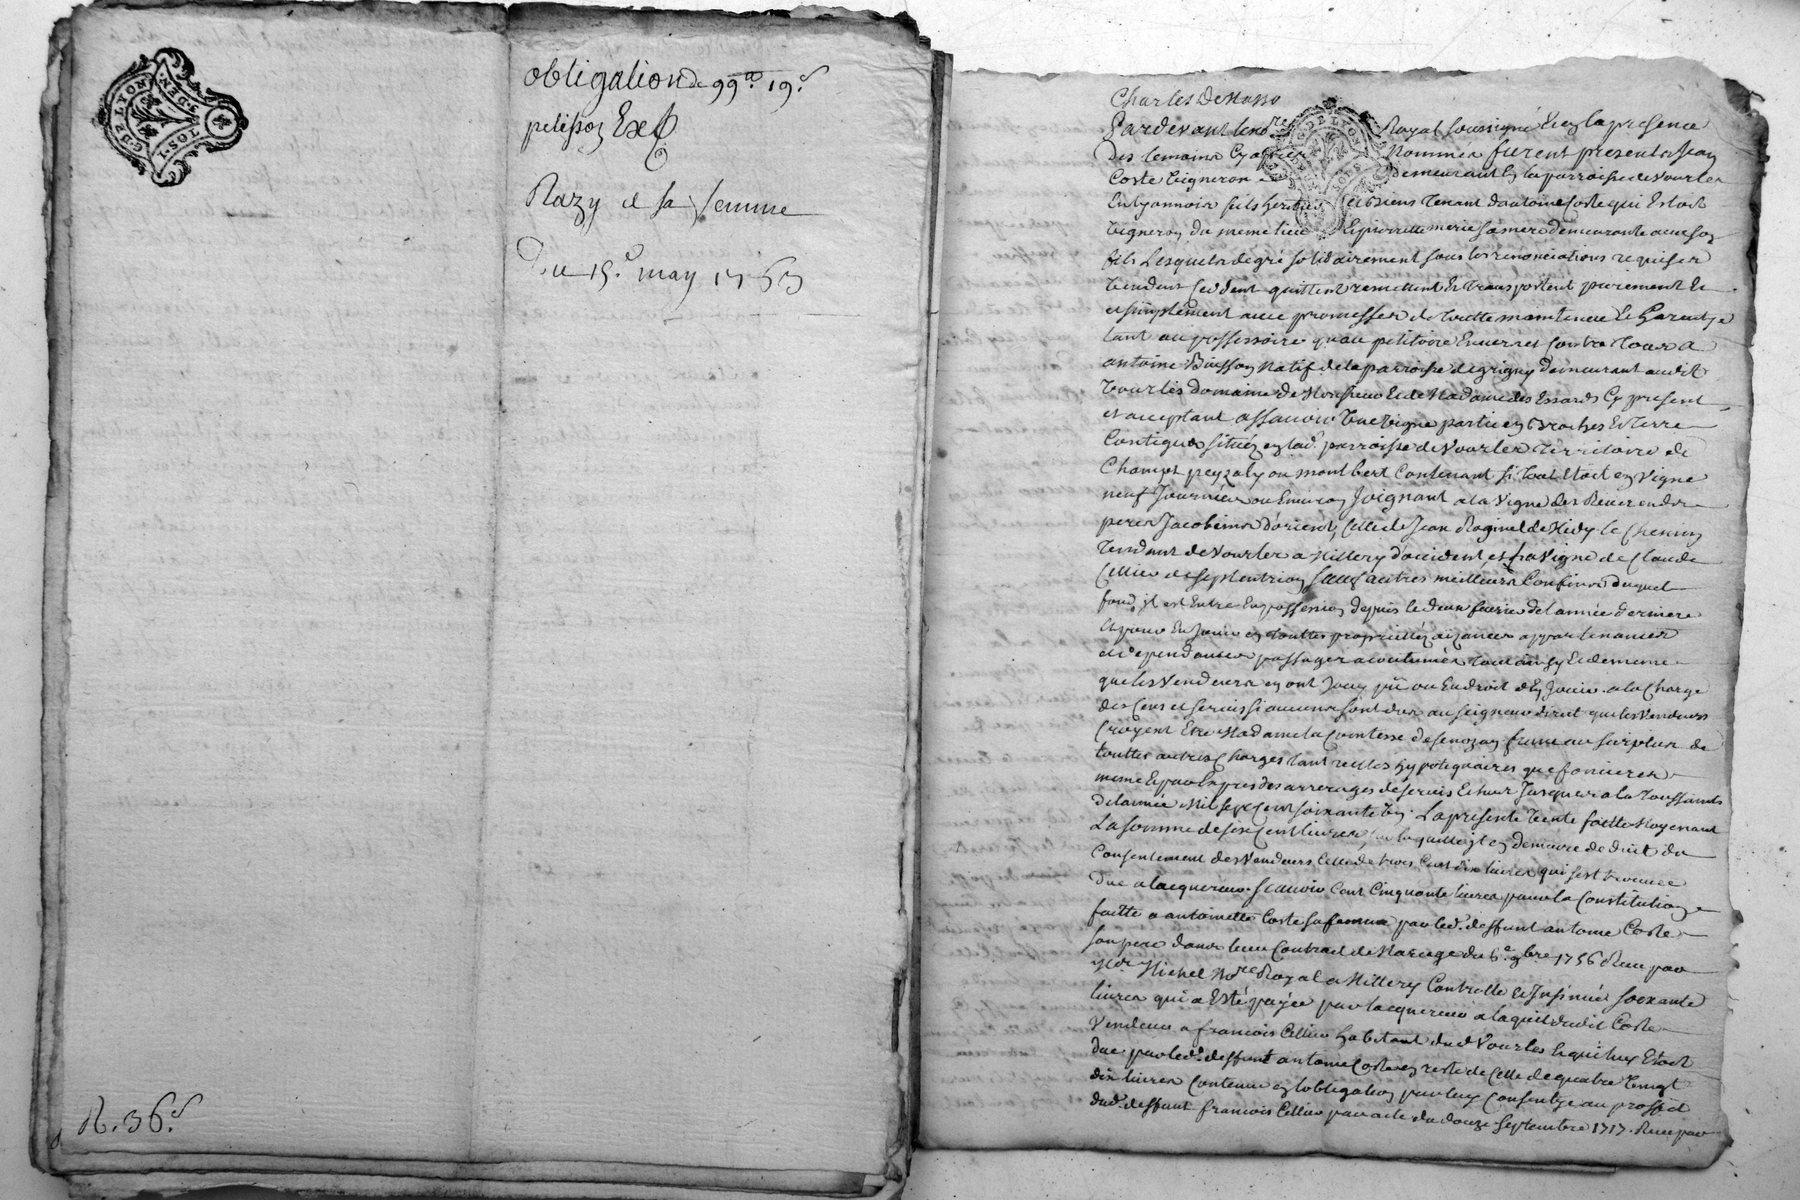 G. DE LYON
SOLS
obligation de 99ᵗᵗ 19ˢ
pelisson Ex
Razy et sa femme
Du 15ᵉ may 1763
R. 36ˢ
Charles De
Pardevant le no.re Royal soussigné et en la presence
des temoins cy apres Nommés furent presents Jean
Coste vigneron demeurant en la parroisse de Vourles
en lyonnois fils heritier et biens tenant d'antoine Coste qui Estoit
vigneron du meme lieu et pierrette merie sa mere demeurante avec son
fils Lesquels de gré solidairement sous les renonciations requises
vendent ceddent quittent remettent et transportent purement et
et simplement avec promesses de toutte maintenue et Garentye
tant au possessoire qu'au petitoire Envers et contre tous a
antoine Buisson Natif de la parroisse de grigny demeurant audit
Vourles domaine de Monsieur et de Madame des Essards Cy present
et acceptant assavoir une vigne partie en Broches et Terre
Contigues situés en lad. parroisse de Vourles Territoire de
Champt peyzaly ou montbert Contenant si tout Etoit en Vigne
neuf Journées ou Environ Joignant a la Vigne des Reverends
peres Jacobins d'orient, celle de Jean Raginel de midy le Chemin
Tendant de Vourles a Millery d'occident, et la Vigne de Claude
Cellier de septentrion sauf autres meilleurs Confins duquel
fond jl est Entré en possession depuis le deux fevrier de l'année derniere
et pour En Jouir en touttes proprietés aizances appartenances
et dependances passages acoutumés tout ainsy Et de meme
que les Vendeurs en ont Jouy pû ou Eu droit d'En Jouir. a la Charge
des Cens et servis si aucuns sont dus au seigneur direct que les Vendeurs
Croyent Etre Madame la Comtesse de Senozan franc au surplus de
touttes autres Charges tant reelles hypotequaires que foncieres
meme Et par Exprès des arrerages de servis Echus Jusques a la Toussaints
de l'année Mil sept Cent soixante Un. La presente Vente faitte Moyenant
La somme de six Cent livres, sur laquelle jl en demeure deduit du
Consentement des Vendeurs celle de trois Cent dix livres qui s'est trouvée
Due a lacquereur. scavoir Cent Cinquante livres pour la Constitution
faitte a antoinette Coste sa femme par led. deffunt antoine Coste
son pere dans leur Contract de Mariage du 6.e 9bre 1756 Receu par
Me. Michel No.re Royal a Millery Controllé et Insinué soixante
livres qui a Eté payée par lacquereur a laquit dudit Coste
Vendeur a francois Cellier habitant dud Vourles a qui luy Etoit
due par led. deffunt antoine Coste en reste de celle de quatre vingt
dix livres Contenue en l'obligation par luy Consentye au proffit
dud. deffunt francois Cellier par acte du douze septembre 1717. Receu par